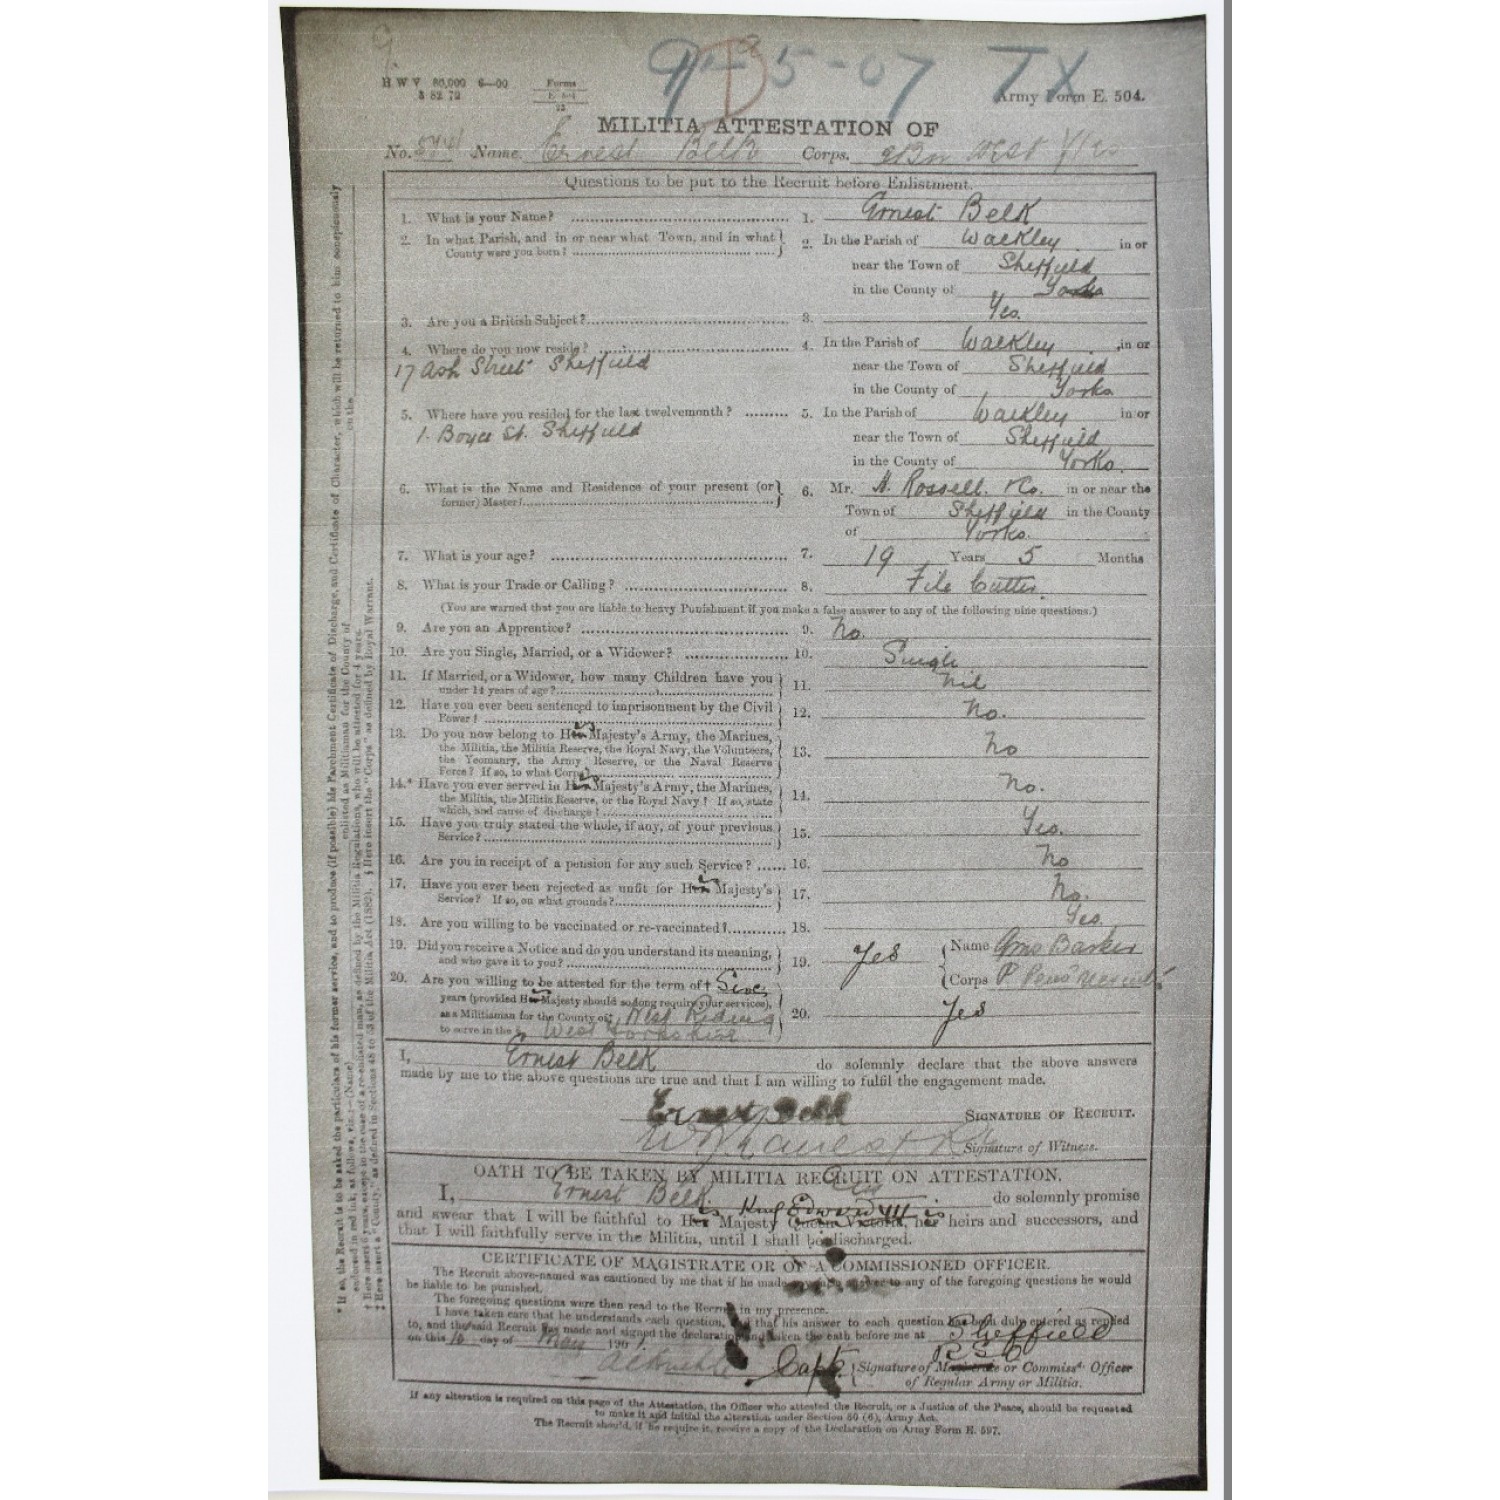 9
9-5-07 TX
H W V 80,000 6—00 Forms
8 82 72 E. 504
22
Army Form E. 504.
MILITIA ATTESTATION OF
No. 5741 Name Ernest Belk Corps. 3 Bn West Yks
Questions to be put to the Recruit before Enlistment.
1. What is your Name? 1. Ernest Belk
2. In what Parish, and in or near what Town, and in what County were you born? 2. In the Parish of Walkley in or
near the Town of Sheffield
in the County of Yorks
3. Are you a British Subject? 3. Yes.
4. Where do you now reside? 4. In the Parish of Walkley in or
17 Ash Street Sheffield near the Town of Sheffield
in the County of Yorks
5. Where have you resided for the last twelvemonth? 5. In the Parish of Walkley in or
1. Boyce St. Sheffield near the Town of Sheffield
in the County of Yorks.
6. What is the Name and Residence of your present (or former) Master? 6. Mr. H. Rossell. & Co. in or near the
Town of Sheffield in the County
of Yorks.
7. What is your age? 7. 19 Years 5 Months
8. What is your Trade or Calling? 8. File Cutter.
(You are warned that you are liable to heavy Punishment if you make a false answer to any of the following nine questions.)
9. Are you an Apprentice? 9. No.
10. Are you Single, Married, or a Widower? 10. Single
11. If Married, or a Widower, how many Children have you
under 14 years of age? 11. Nil
12. Have you ever been sentenced to imprisonment by the Civil
Power? 12. No.
13. Do you now belong to His Majesty's Army, the Marines,
the Militia, the Militia Reserve, the Royal Navy, the Volunteers,
the Yeomanry, the Army Reserve, or the Naval Reserve
Force? If so, to what Corps? 13. No
14.* Have you ever served in His Majesty's Army, the Marines,
the Militia, the Militia Reserve, or the Royal Navy? If so, state
which, and cause of discharge? 14. No.
15. Have you truly stated the whole, if any, of your previous
Service? 15. Yes.
16. Are you in receipt of a pension for any such Service? 16. No
17. Have you ever been rejected as unfit for His Majesty's
Service? If so, on what grounds? 17. No.
18. Are you willing to be vaccinated or re-vaccinated? 18. Yes.
19. Did you receive a Notice and do you understand its meaning,
and who gave it to you? 19. Yes Name Geo Barker
Corps P. Pens Recruiter
20. Are you willing to be attested for the term of† Six
years (provided His Majesty should so long require your services),
as a Militiaman for the County of‡ West Riding
to serve in the § West Yorkshire 20. Yes
I, Ernest Belk do solemnly declare that the above answers
made by me to the above questions are true and that I am willing to fulfil the engagement made.
Ernest Belk SIGNATURE OF RECRUIT.
Signature of Witness.
OATH TO BE TAKEN BY MILITIA RECRUIT ON ATTESTATION.
I, Ernest Belk do solemnly promise
King Edward VII is
and swear that I will be faithful to His Majesty Queen Victoria, her heirs and successors, and
that I will faithfully serve in the Militia, until I shall be discharged.
CERTIFICATE OF MAGISTRATE OR OF A COMMISSIONED OFFICER.
The Recruit above-named was cautioned by me that if he made any false answer to any of the foregoing questions he would
be liable to be punished.
The foregoing questions were then read to the Recruit in my presence.
I have taken care that he understands each question, and that his answer to each question has been duly entered as replied
to, and the said Recruit has made and signed the declaration and taken the oath before me at Sheffield
on this 10 day of May 1901.
Capt. Signature of Magistrate or Commissd. Officer
of Regular Army or Militia.
If any alteration is required on this page of the Attestation, the Officer who attested the Recruit, or a Justice of the Peace, should be requested
to make it and initial the alteration under Section 80 (6), Army Act.
The Recruit should, if he require it, receive a copy of the Declaration on Army Form E. 597.
* If so, the Recruit is to be asked the particulars of his former service, and to produce (if possible) his Parchment Certificate of Discharge, and Certificate of Character, which will be returned to him conspicuously
endorsed in red ink, as follows, viz.:—(Name) enlisted as Militiaman for the County of on the
† Here insert 6 years, except in the case of a re-enlisted man, as defined by the Militia Regulations, who will be attested for 4 years.
‡ Here insert a "County," as defined in Sections 48 to 53 of the Militia Act (1882). § Here insert the "Corps" as defined by Royal Warrant.